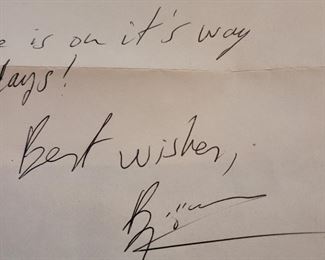 e is on it's way
days!
Best wishes,
Björn